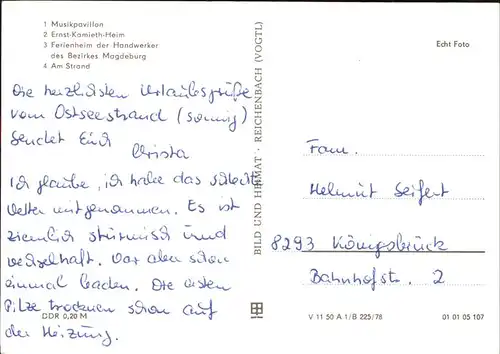 1 Musikpavillon
2 Ernst-Kamieth-Heim
3 Ferienheim der Handwerker
des Bezirkes Magdeburg
4 Am Strand
Die herzlichsten Urlaubsgrüße
vom Ostseestrand (sonnig)
sendet Euch
Christa
Ich glaube, ich habe das schlechte
Wetter mitgenommen. Es ist
ziemlich stürmisch und
wechselhaft. War aber schon
einmal baden. Die ersten
Pilze trocknen schon auf
der Heizung.
DDR 0,20 M
BILD UND HEIMAT · REICHENBACH (VOGTL)
Echt Foto
Fam.
Helmut Seifert
8293 Königsbrück
Bahnhofstr. 2
V 11 50 A 1/B 225/76
01 01 05 107